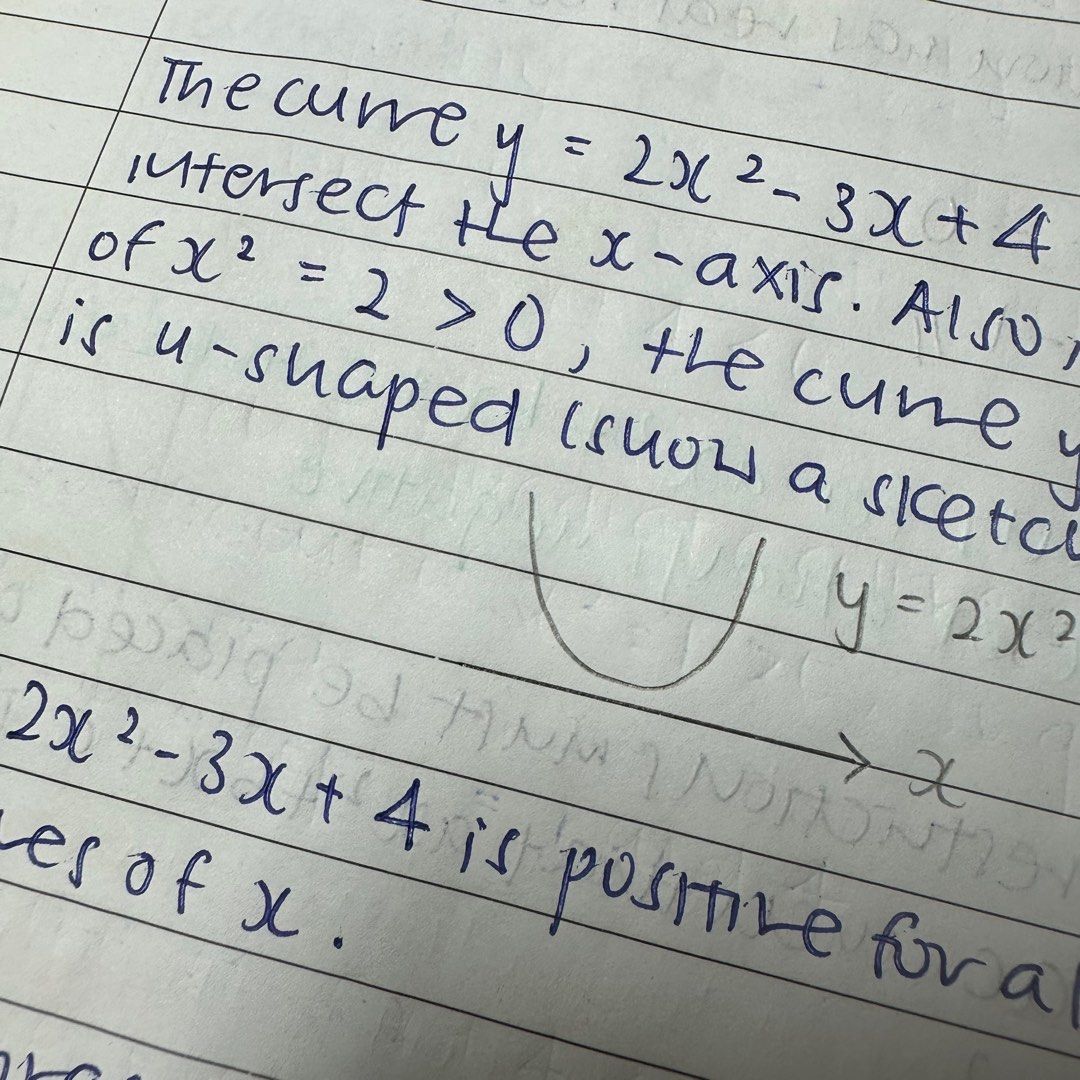 The curve y = 2x² - 3x + 4
intersect the x-axis. Also,
of x² = 2 > 0, the curve y
is u-shaped (show a sketc
y = 2x²
x
2x² - 3x + 4 is positive for al
es of x.